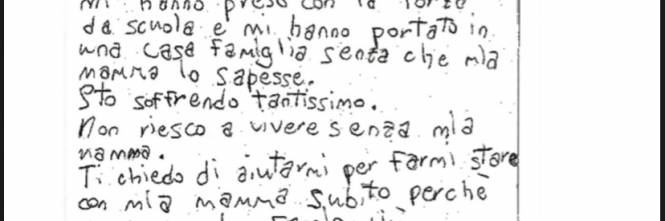 mi hanno preso con la forza
da scuola e mi hanno portato in
una casa famiglia senza che mia
mamma lo sapesse.
Sto soffrendo tantissimo.
Non riesco a vivere senza mia
mamma.
Ti chiedo di aiutarmi per farmi stare
con mia mamma subito perché